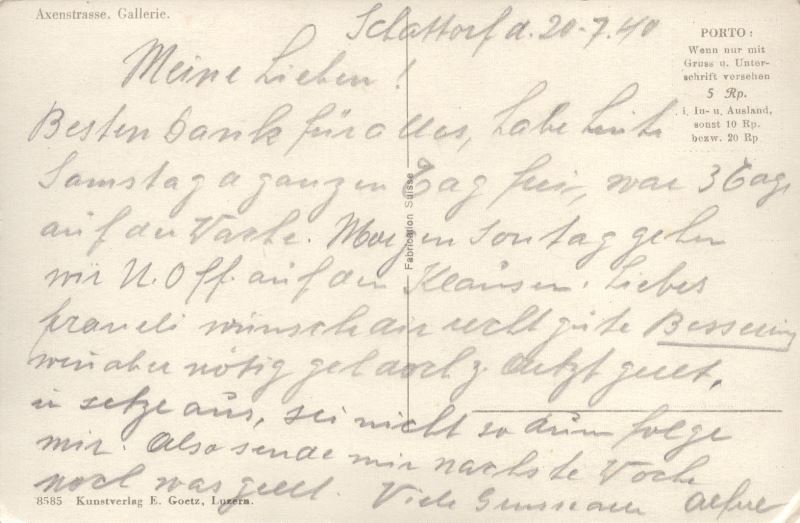 Axenstrasse. Gallerie.
Schattorf d. 20-7.40
PORTO:
Wenn nur mit
Gruss u. Unter-
schrift versehen
5 Rp.
i. In- u. Ausland,
sonst 10 Rp.
bezw. 20 Rp
Meine Lieben!
Besten Dank für alles, habe heute
Samstag a ganzen Tag frei, war 3 Tage
auf der Wache. Morgen Sontag gehen
wir U.Off. auf den Klausen. Liebes
fraueli wünsche dir recht gute Besserung
wen aber nötig geh doch z. Artzt
u setze aus, sei nicht so dum folge
mir. Also sende mir nächste Woche
noch was Viele Grüsse an alle
Fabrication Suisse
8585 Kunstverlag E. Goetz, Luzern.